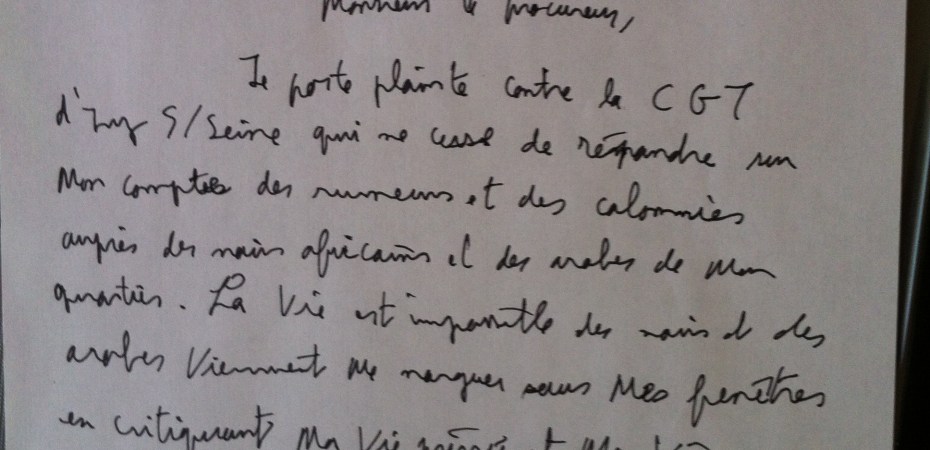 Monsieur le procureur,
Je porte plainte contre la CGT
d'Ivry S/Seine qui ne cesse de répandre sur
Mon comptes des rumeurs et des calomnies
auprès des noirs africains et des arabes de mon
quartiers. La Vie est impossible des noirs et des
arabes Viennent me narguer sous Mes fenêtres
en critiquant Ma Vie privée et Ma